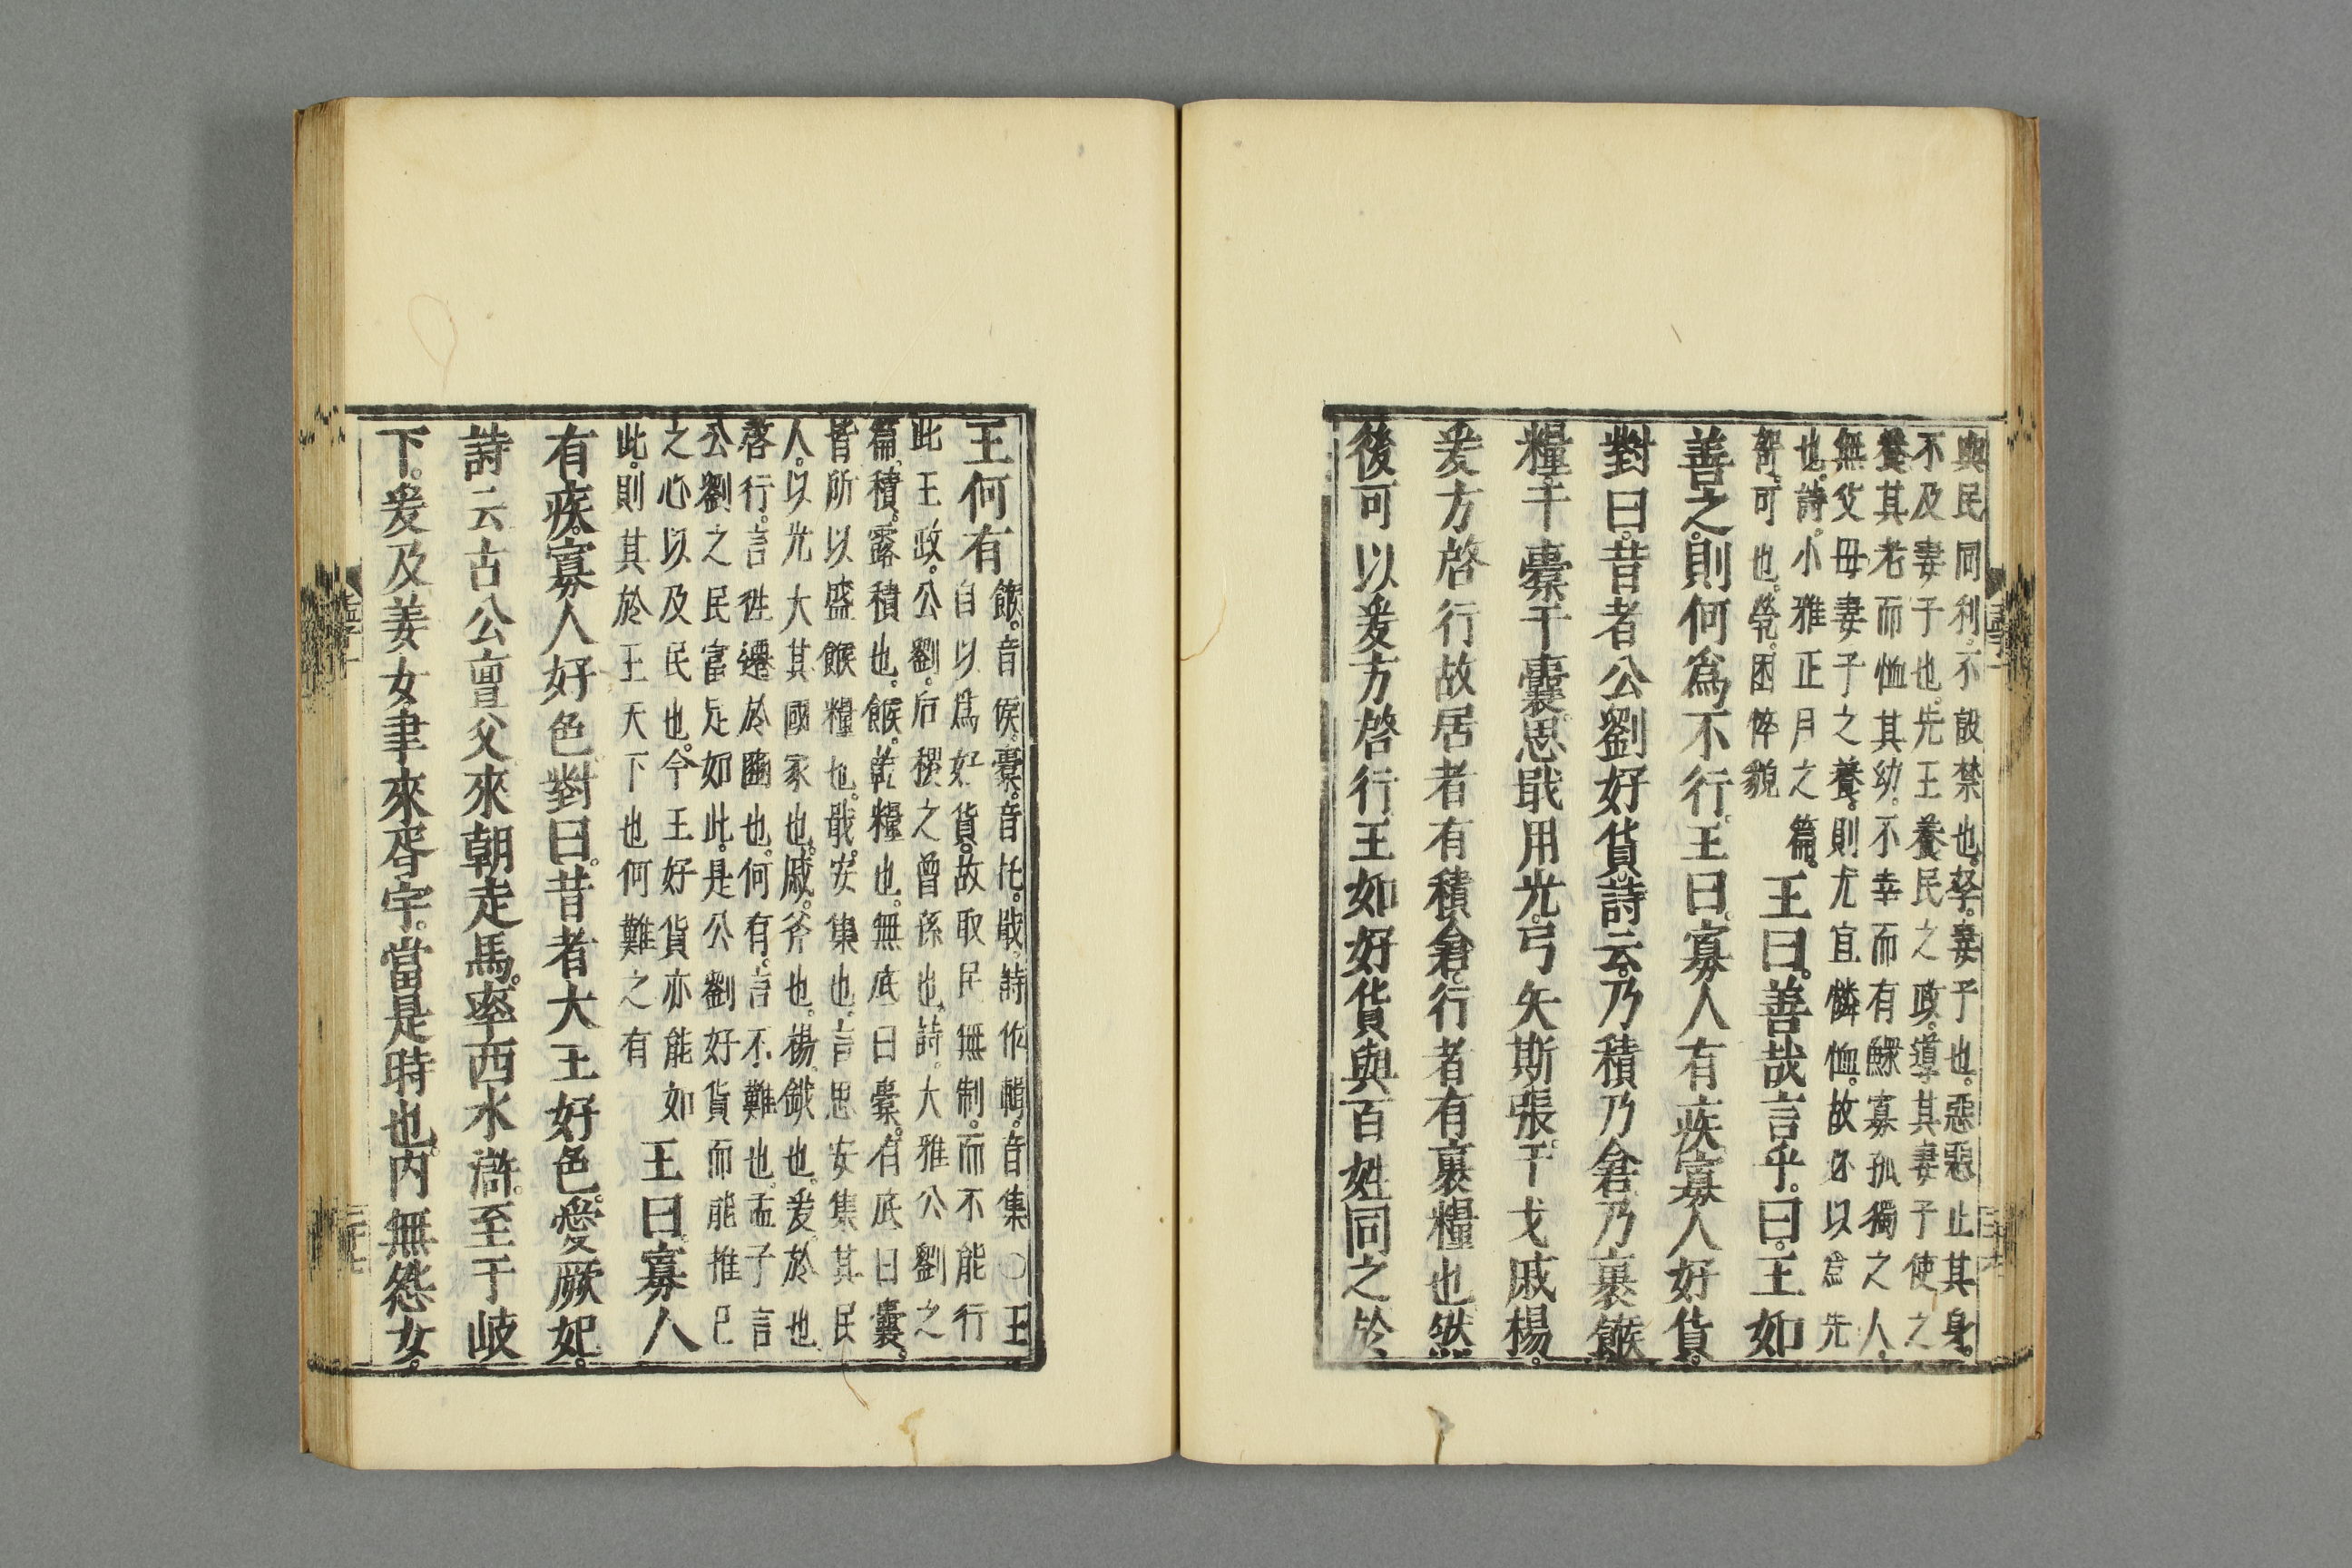 與民同利。不設禁也。孥。妻子也。惡惡止其身。
不及妻子也。先王養民之政。導其妻子使之
養其老而恤其幼。不幸而有鰥寡孤獨之人。
無父母妻子之養。則尤宜憐恤。故必以爲先
也。詩。小雅正月之篇。
哿。可也。煢。困悴貌
王曰。善哉言乎。曰。王如
善之。則何爲不行。王曰。寡人有疾。寡人好貨。
對曰。昔者公劉好貨。詩云。乃積乃倉。乃裹餱
糧。于橐于囊。思戢用光。弓矢斯張。干戈戚揚。
爰方啓行。故居者有積倉。行者有裹糧也。然
後可以爰方啓行。王如好貨與百姓同之。於
王何有
餱。音侯。橐。音托。戢。詩作輯。音集○王
自以爲好貨。故取民無制。而不能行
此王政。公劉。后稷之曾孫也。詩。大雅公劉之
篇。積。露積也。餱。乾糧也。無底曰橐。有底曰囊。
皆所以盛餱糧也。戢。安集也。言思安集其民
人。以光大其國家也。戚。斧也。揚。鉞也。爰。於也
啓行。言徃遷於豳也。何有。言不難也。孟子言
公劉之民富足如此。是公劉好貨而能推己
之心以及民也。今王好貨亦能如
此。則其於王天下也何難之有
王曰。寡人
有疾。寡人好色。對曰。昔者大王好色。愛厥妃。
詩云。古公亶父。來朝走馬。率西水滸。至于岐
下。爰及姜女。聿來胥宇。當是時也。内無怨女。